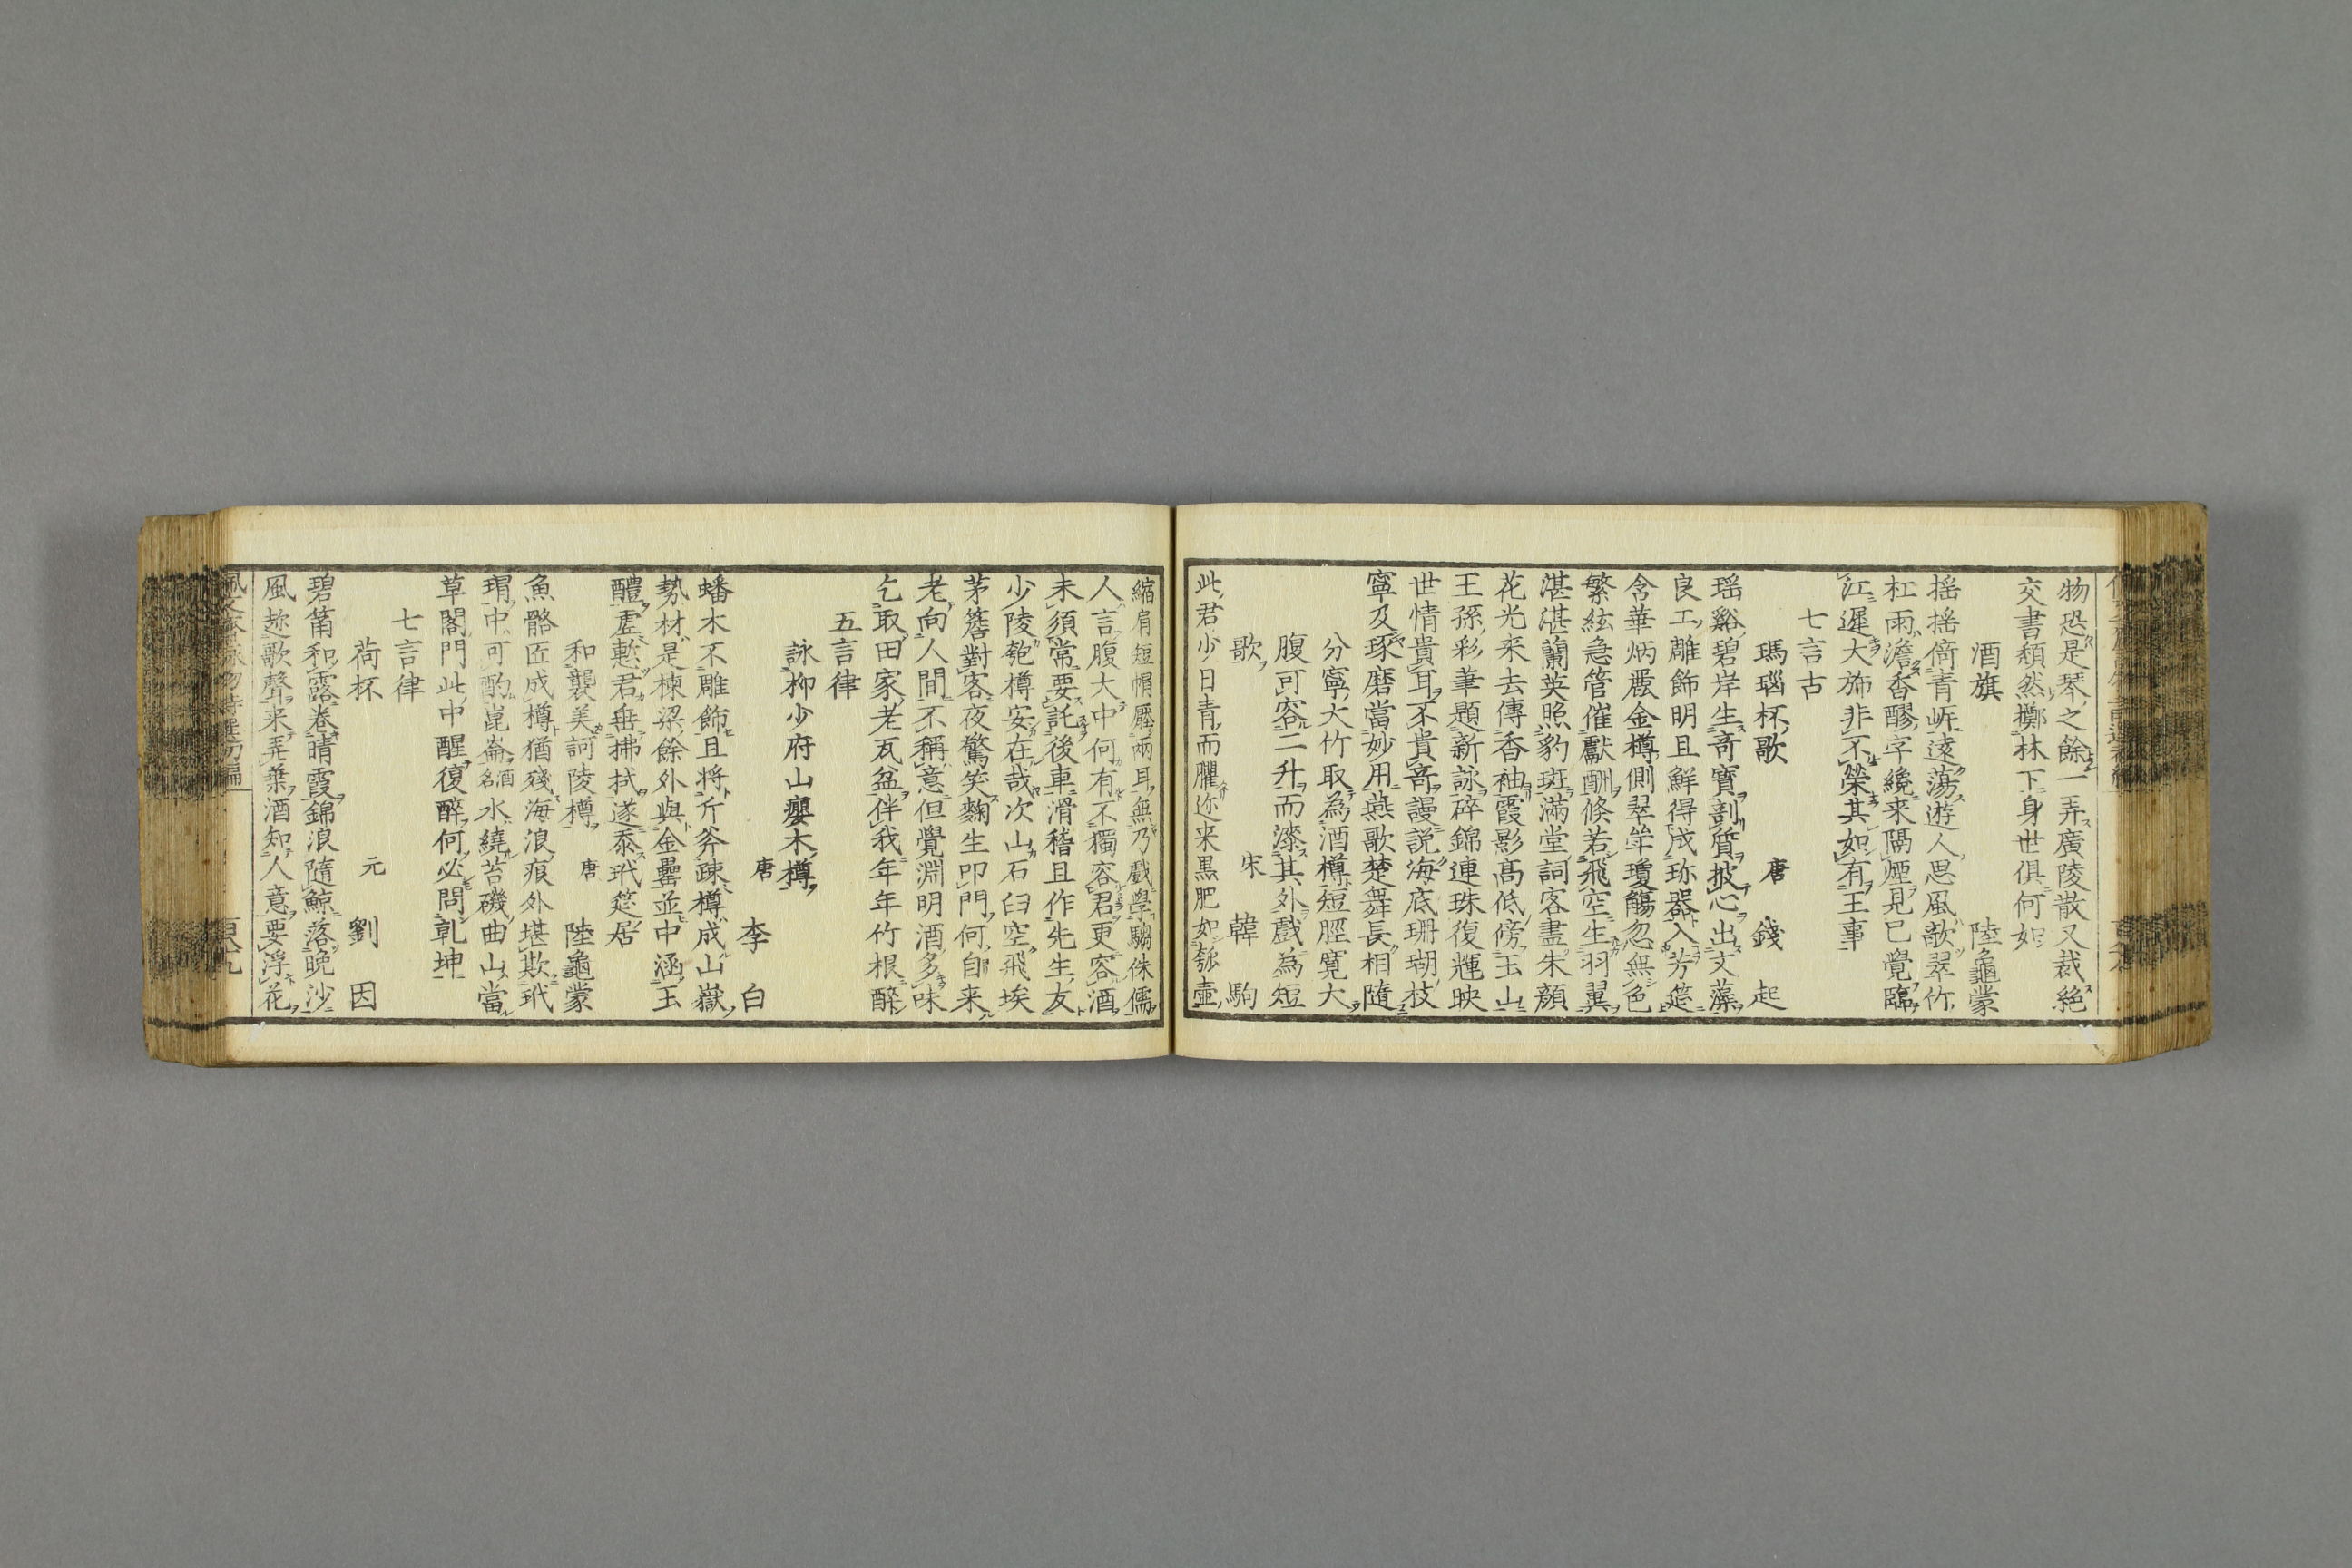 物恐是琴之餘一弄廣陵散又裁絶
交書頽然擲林下身世俱何如
酒旗　陸龜蒙
揺揺倚青岍遠蕩遊人思風欹翠竹
杠雨澹香醪字纔来隔煙見已覺臨
江遲大斾非不榮其如有王事
七言古
瑪瑙杯歌　唐　錢起
瑶谿碧岸生奇寶剖質披心出文藻
良工雕飾明且鮮得成珎器入芳筵
含華炳麗金樽側翠斝瓊觴忽無色
繁絃急管催獻酬倏若飛空生羽翼
湛湛蘭英照豹斑滿堂詞客盡朱顔
花光来去傳香袖霞影髙低傍玉山
王孫彩筆題新詠碎錦連珠復輝映
世情貴耳不貴奇謾説海底珊瑚枝
寧及琢磨當妙用燕歌楚舞長相隨
分寧大竹取為酒樽短脛寛大
腹可容二升而漆其外戯為短
歌　宋　韓駒
此君少日青而臞迩来黒肥如瓠壷
縮肩短帽壓兩耳無乃戯學騶侏儒
人言腹大中何有不獨容君更容酒
未須常要託後車滑稽且作先生友
少陵匏樽安在哉次山石臼空飛埃
茅簷對客夜驚笑麴生叩門何自来
老向人間不稱意但覺淵明酒多味
乞取田家老瓦盆伴我年年竹根醉
五言律
詠柳少府山癭木樽
唐　李白
蟠木不雕飾且将斤斧疎樽成山嶽
勢材是棟梁餘外與金罍並中涵玉
醴虚慙君垂拂拭遂忝玳筵居
和襲美訶陵樽　唐　陸龜蒙
魚骼匠成樽猶殘海浪痕外堪欺玳
瑁中可酌崑崙酒名水繞苔磯曲山當
草閣門此中醒復醉何必問乹坤
七言律
荷杯　元　劉因
碧筩和露卷晴霞錦浪隨鯨落晩沙
風趂歌聲来弄葉酒知人意要浮花